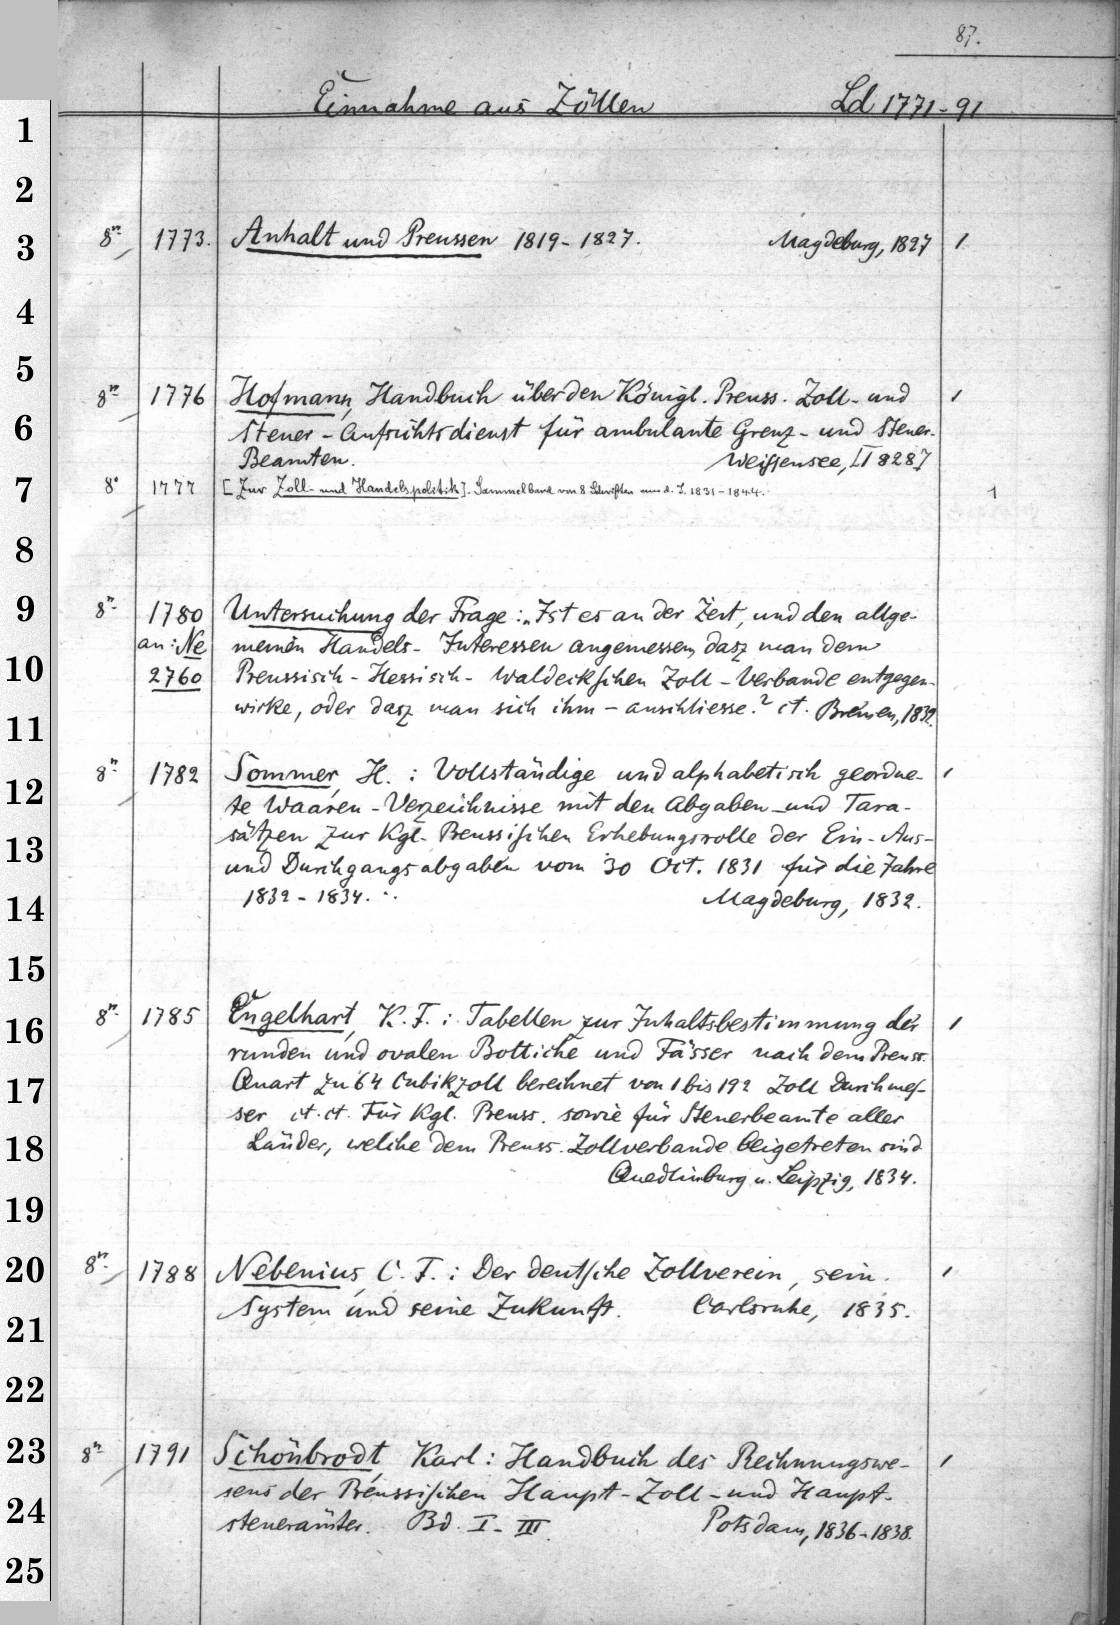 87.
Einnahme aus Zöllen Ld 1771-91
1
2
3 8º 1773. Anhalt und Preussen 1819-1827. Magdeburg, 1827 1
4
5
8º 1776 Hofmann, Handbuch über den Königl. Preuss. Zoll- und 1
6 Steuer-Aufsichtsdienst für ambulante Grenz- und Steuer-
Beamten. Weißensee, [1828]
7 8º 1777 [Zur Zoll- und Handelspolitik]. Sammelband von 8 Schriften aus d. J. 1831-1844. 1
8
9 8º 1780 Untersuchung der Frage: „Ist es an der Zeit, und den allge-
an: Ne meinen Handels- Interessen angemessen, dasz man dem
10 2760 Preussisch-Hessisch-Waldeckschen Zoll-Verbande entgegen-
11 wirke, oder dasz man sich ihm – anschliesse? ct. Bremen, 1832.
12 8º 1782 Sommer, H.: Vollständige und alphabetisch geordne- 1
te Waaren-Verzeichnisse mit den Abgaben- und Tara-
13 sätzen zur Kgl. Preussischen Erhebungsrolle der Ein- Aus-
und Durchgangsabgaben vom 30 Oct. 1831 für die Jahre
14 1832-1834. Magdeburg, 1832.
15
16 8º 1785 Engelhart, K. F.: Tabellen zur Inhaltsbestimmung der 1
runden und ovalen Bottiche und Fässer nach dem Preuss.
17 Quart zu 64 Cubikzoll berechnet von 1 bis 192 Zoll Durchmes-
ser ct. ct. Für Kgl. Preuss. sowie für Steuerbeamte aller
18 Länder, welche dem Preuss. Zollverbande beigetreten sind
Quedlinburg u. Leipzig, 1834.
19
20 8º 1788 Nebenius, C. F.: Der deutsche Zollverein, sein 1
System und seine Zukunft. Carlsruhe, 1835.
21
22
23 8º 1791 Schönbrodt, Karl: Handbuch des Rechnungswe- 1
sens der Preussischen Haupt-Zoll- und Haupt-
24 steuerämter. Bd. I-III. Potsdam, 1836-1838.
25